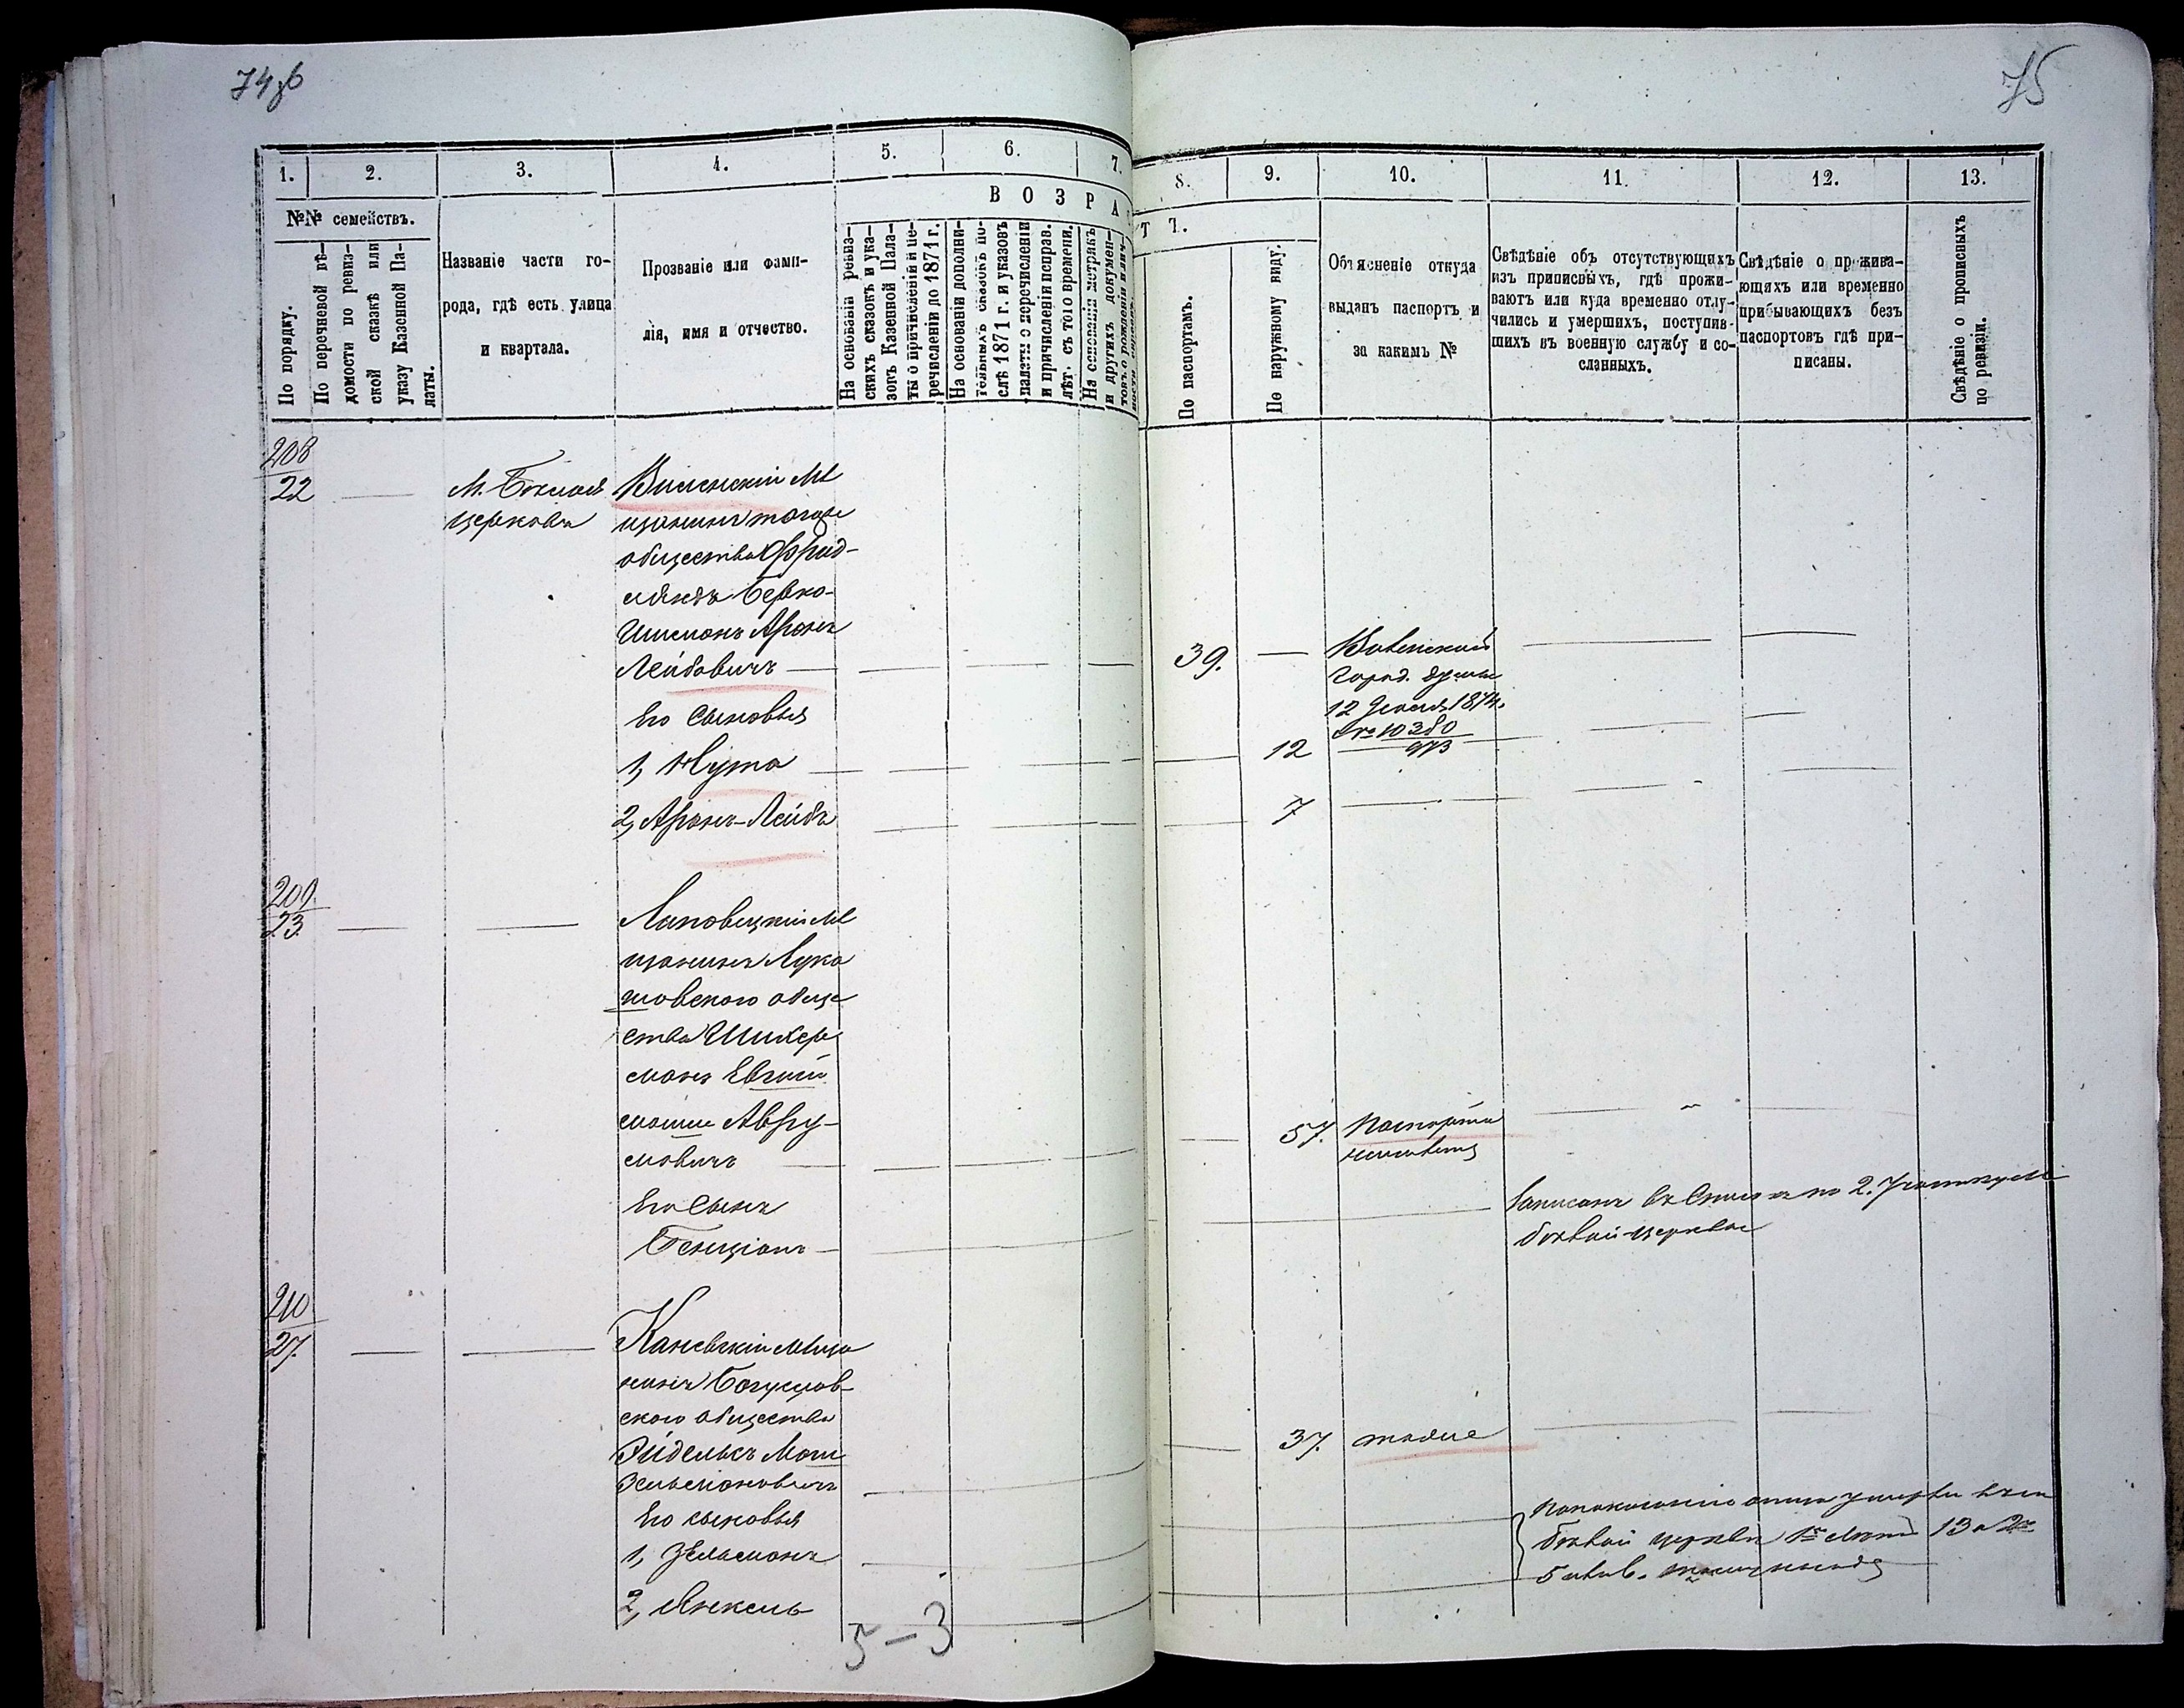 74 об
75
1. 2. 3. 4. 5. 6. 7. 8. 9. 10. 11. 12. 13.
№№ семействъ.
По порядку.
По перечневой вѣ-
домости по ревиз-
ской сказкѣ или
указу Казенной Па-
латы.
Названіе части го-
рода, гдѣ есть улица
и квартала.
Прозваніе или фами-
лія, имя и отчество.
ВОЗРА
ТЪ.
На основаніи ревиз-
скихъ сказокъ и ука-
зовъ Казенной Пала-
ты о причисленіи и пе-
речисленіи до 1871 г.
На основаніи дополни-
тельныхъ сказокъ по-
слѣ 1871 г. и указовъ
палаты о перечисленіи
и причисленіи исправ.
лѣт. съ того времени.
На основаніи метрикъ
и другихъ докумен-
товъ о рожденіи и лич-
ности
По паспортамъ.
По наружному виду.
Объясненіе откуда
выданъ паспортъ и
за какимъ №
Свѣдѣніе объ отсутствующихъ
изъ приписныхъ, гдѣ прожи-
ваютъ или куда временно отлу-
чились и умершихъ, поступив-
шихъ въ военную службу и со-
сланныхъ.
Свѣдѣніе о прожива-
ющихъ или временно
прибывающихъ безъ
паспортовъ гдѣ при-
писаны.
Свѣдѣніе о прописныхъ
по ревизіи.
208
22
М. Бѣлая
церковь
Виленскій мѣ
щанинъ тогоже
общества Фрид-
Берко-
Шмемонъ Аронъ
Лейбовичъ
39.
Виленской
город. думы
12 Декаб. 1874.
№ 10380
973
Его сыновья
1, Нута
12
2, Аронъ-Лейба
7
209.
23.
Липовецкій мѣ
щанинъ Лука
шовского обще
ства Шихер
манъ Евгий
мошко Авру-
мовичъ
57.
Паспорта
неимѣетъ
Его сынъ
Бенціонъ
Записанъ въ Списокъ по 2. Участку м.
бѣлой-церкви
210
27.
Каневскій мѣща
нинъ Богуслав-
ского общества
Эйдельсъ Мош
Зельмановичъ
37.
тоже
Его сыновья
1, Зельманъ
2, Янкель
По показанію отца умерли въ м.
бѣлой церкви 1й лѣтъ 13 а 2й
5 лѣтъ.
5-3